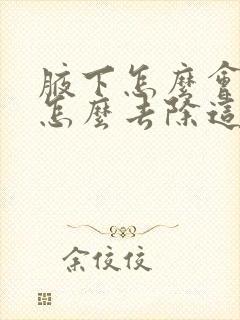 腋下怎麼會
怎麼去除這
余佼佼